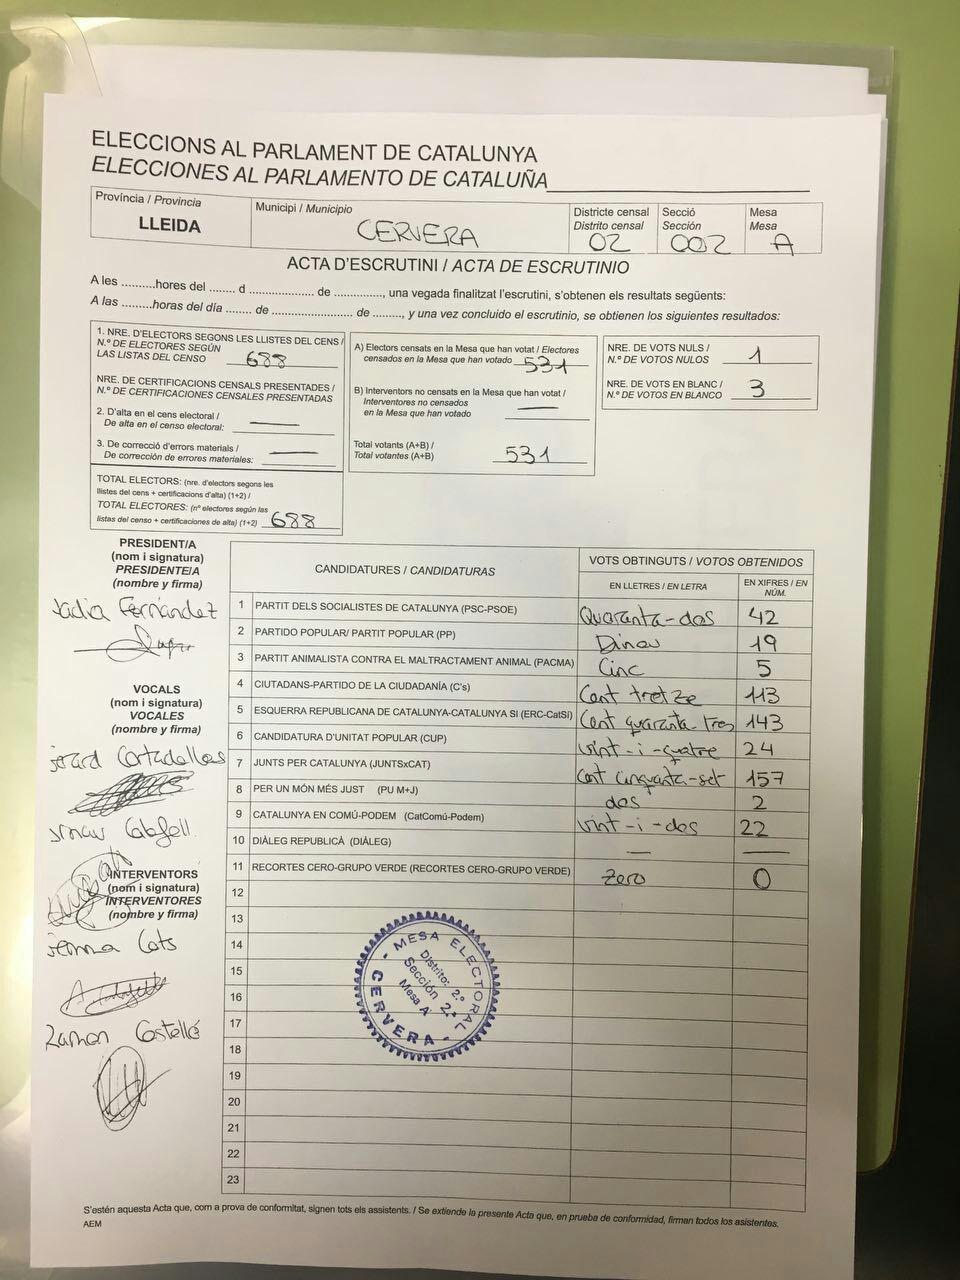 ELECCIONS AL PARLAMENT DE CATALUNYA
ELECCIONES AL PARLAMENTO DE CATALUÑA
Província / Provincia
LLEIDA
Municipi / Municipio
CERVERA
Districte censal
Distrito censal
02
Secció
Sección
002
Mesa
Mesa
A
ACTA D'ESCRUTINI / ACTA DE ESCRUTINIO
A les ..........hores del ........ d .................... de ..............., una vegada finalitzat l'escrutini, s'obtenen els resultats següents:
A las .........horas del día ........ de ........................ de ........., y una vez concluido el escrutinio, se obtienen los siguientes resultados:
1. NRE. D'ELECTORS SEGONS LES LLISTES DEL CENS /
N.º DE ELECTORES SEGÚN
LAS LISTAS DEL CENSO 688
NRE. DE CERTIFICACIONS CENSALS PRESENTADES /
N.º DE CERTIFICACIONES CENSALES PRESENTADAS
2. D'alta en el cens electoral /
De alta en el censo electoral: —
3. De correcció d'errors materials /
De corrección de errores materiales: —
TOTAL ELECTORS: (nre. d'electors segons les
llistes del cens + certificacions d'alta) (1+2) /
TOTAL ELECTORES: (nº electores según las
listas del censo + certificaciones de alta) (1+2) 688
A) Electors censats en la Mesa que han votat / Electores
censados en la Mesa que han votado 531
B) Interventors no censats en la Mesa que han votat /
Interventores no censados
en la Mesa que han votado —
Total votants (A+B) /
Total votantes (A+B) 531
NRE. DE VOTS NULS /
N.º DE VOTOS NULOS 1
NRE. DE VOTS EN BLANC /
N.º DE VOTOS EN BLANCO 3
PRESIDENT/A
(nom i signatura)
PRESIDENTE/A
(nombre y firma)
Fernández
VOCALS
(nom i signatura)
VOCALES
(nombre y firma)
INTERVENTORS
(nom i signatura)
INTERVENTORES
(nombre y firma)
Ramon Castellà
CANDIDATURES / CANDIDATURAS
VOTS OBTINGUTS / VOTOS OBTENIDOS
EN LLETRES / EN LETRA
EN XIFRES / EN NÚM.
1 PARTIT DELS SOCIALISTES DE CATALUNYA (PSC-PSOE) Quaranta-dos 42
2 PARTIDO POPULAR/ PARTIT POPULAR (PP) Dinou 19
3 PARTIT ANIMALISTA CONTRA EL MALTRACTAMENT ANIMAL (PACMA) Cinc 5
4 CIUTADANS-PARTIDO DE LA CIUDADANÍA (C's) Cent tretze 113
5 ESQUERRA REPUBLICANA DE CATALUNYA-CATALUNYA SÍ (ERC-CatSí) Cent quaranta-tres 143
6 CANDIDATURA D'UNITAT POPULAR (CUP) vint-i-quatre 24
7 JUNTS PER CATALUNYA (JUNTSxCAT) Cent cinquanta-set 157
8 PER UN MÓN MÉS JUST (PU M+J) dos 2
9 CATALUNYA EN COMÚ-PODEM (CatComú-Podem) vint-i-dos 22
10 DIÀLEG REPUBLICÀ (DIÀLEG) — —
11 RECORTES CERO-GRUPO VERDE (RECORTES CERO-GRUPO VERDE) Zero 0
12
13
14
15
16
17
18
19
20
21
22
23
MESA ELECTORAL
Distrito: 2.º
Sección 2.ª
Mesa A
- CERVERA -
S'estén aquesta Acta que, com a prova de conformitat, signen tots els assistents. / Se extiende la presente Acta que, en prueba de conformidad, firman todos los asistentes.
AEM